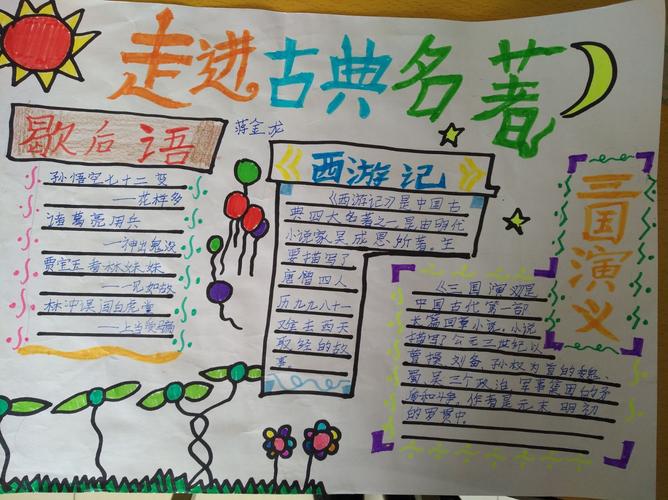 走进古典名著
蒋金龙
歇后语
孙悟空七十二变
——花样多
诸葛亮用兵
——神出鬼没
贾宝玉看林妹妹
——一见如故
林冲误闯白虎堂
——上当受骗
西游记
《西游记》是中国古
典四大名著之一是由明代
小说家吴成恩所著.主
要描写了
唐僧四人
历九九八十一
难去西天
取经的故
事.
三国演义
《三国演义》是
中国古代第一部
长篇回章小说.小说
描写了公元三世纪以
曹操.刘备.孙权为首的魏.
蜀.吴三个政治.军事集团的矛
盾和斗争.作者是元末明初
的罗贯中.